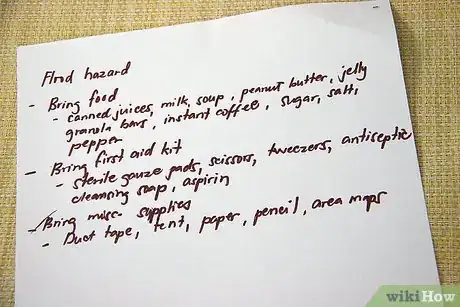 Flood hazard
- Bring food
- canned juices, milk, soup, peanut butter, jelly
granola bars, instant coffee, sugar, salt,
pepper
- Bring first aid kit
- sterile gauze pads, scissors, tweezers, antiseptic
cleansing soap, aspirin
- Bring misc supplies
- Duct tape, tent, paper, pencil, area maps
wikiHow